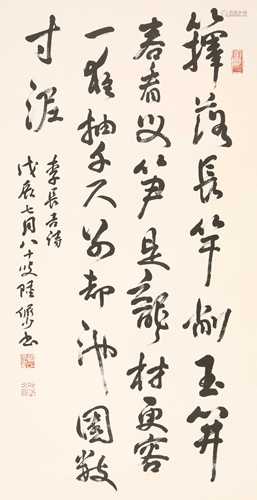 籜落長竿削玉开
君看母笋是龍材更容
一夜抽千尺別却池園數
寸泥
李長吉詩
戊辰七月八十叟陸儼少書